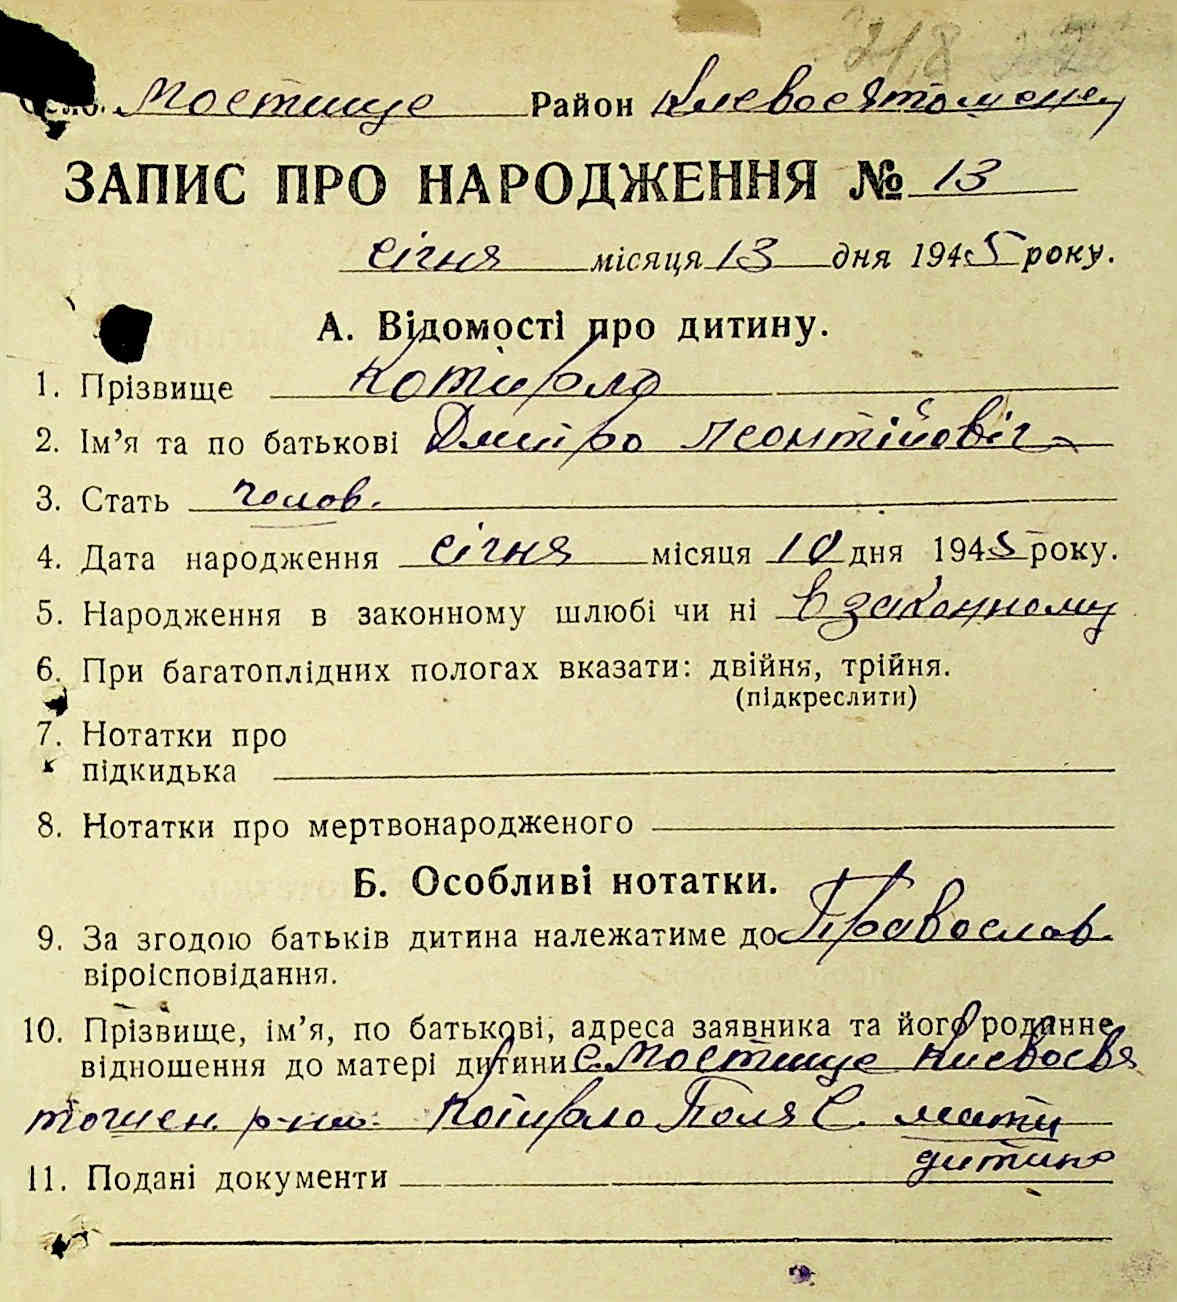 Село Мостище Район Києвосвятошен.
ЗАПИС ПРО НАРОДЖЕННЯ № 13
січня місяця 13 дня 1945 року.
А. Відомості про дитину.
1. Прізвище Котирло
2. Ім’я та по батькові Дмитро Леонтійовіч
3. Стать чолов.
4. Дата народження січня місяця 10 дня 1945 року.
5. Народження в законному шлюбі чи ні в законному
6. При багатоплідних пологах вказати: двійня, трійня.
(підкреслити)
7. Нотатки про
підкидька
8. Нотатки про мертвонародженого
Б. Особливі нотатки.
9. За згодою батьків дитина належатиме до Православ.
віроісповідання.
10. Прізвище, ім’я, по батькові, адреса заявника та його родинне
відношення до матері дитини с. Мостище Києвосвя
тошен. р-ну. Котирло Поля С. мати
дитини
11. Подані документи